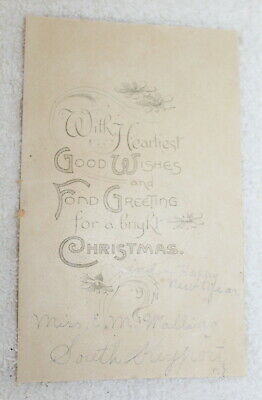 With Heartiest
Good Wishes
and
Fond Greeting
for a bright
Christmas.
and Happy
New Year
Miss. E. M. Walling
South